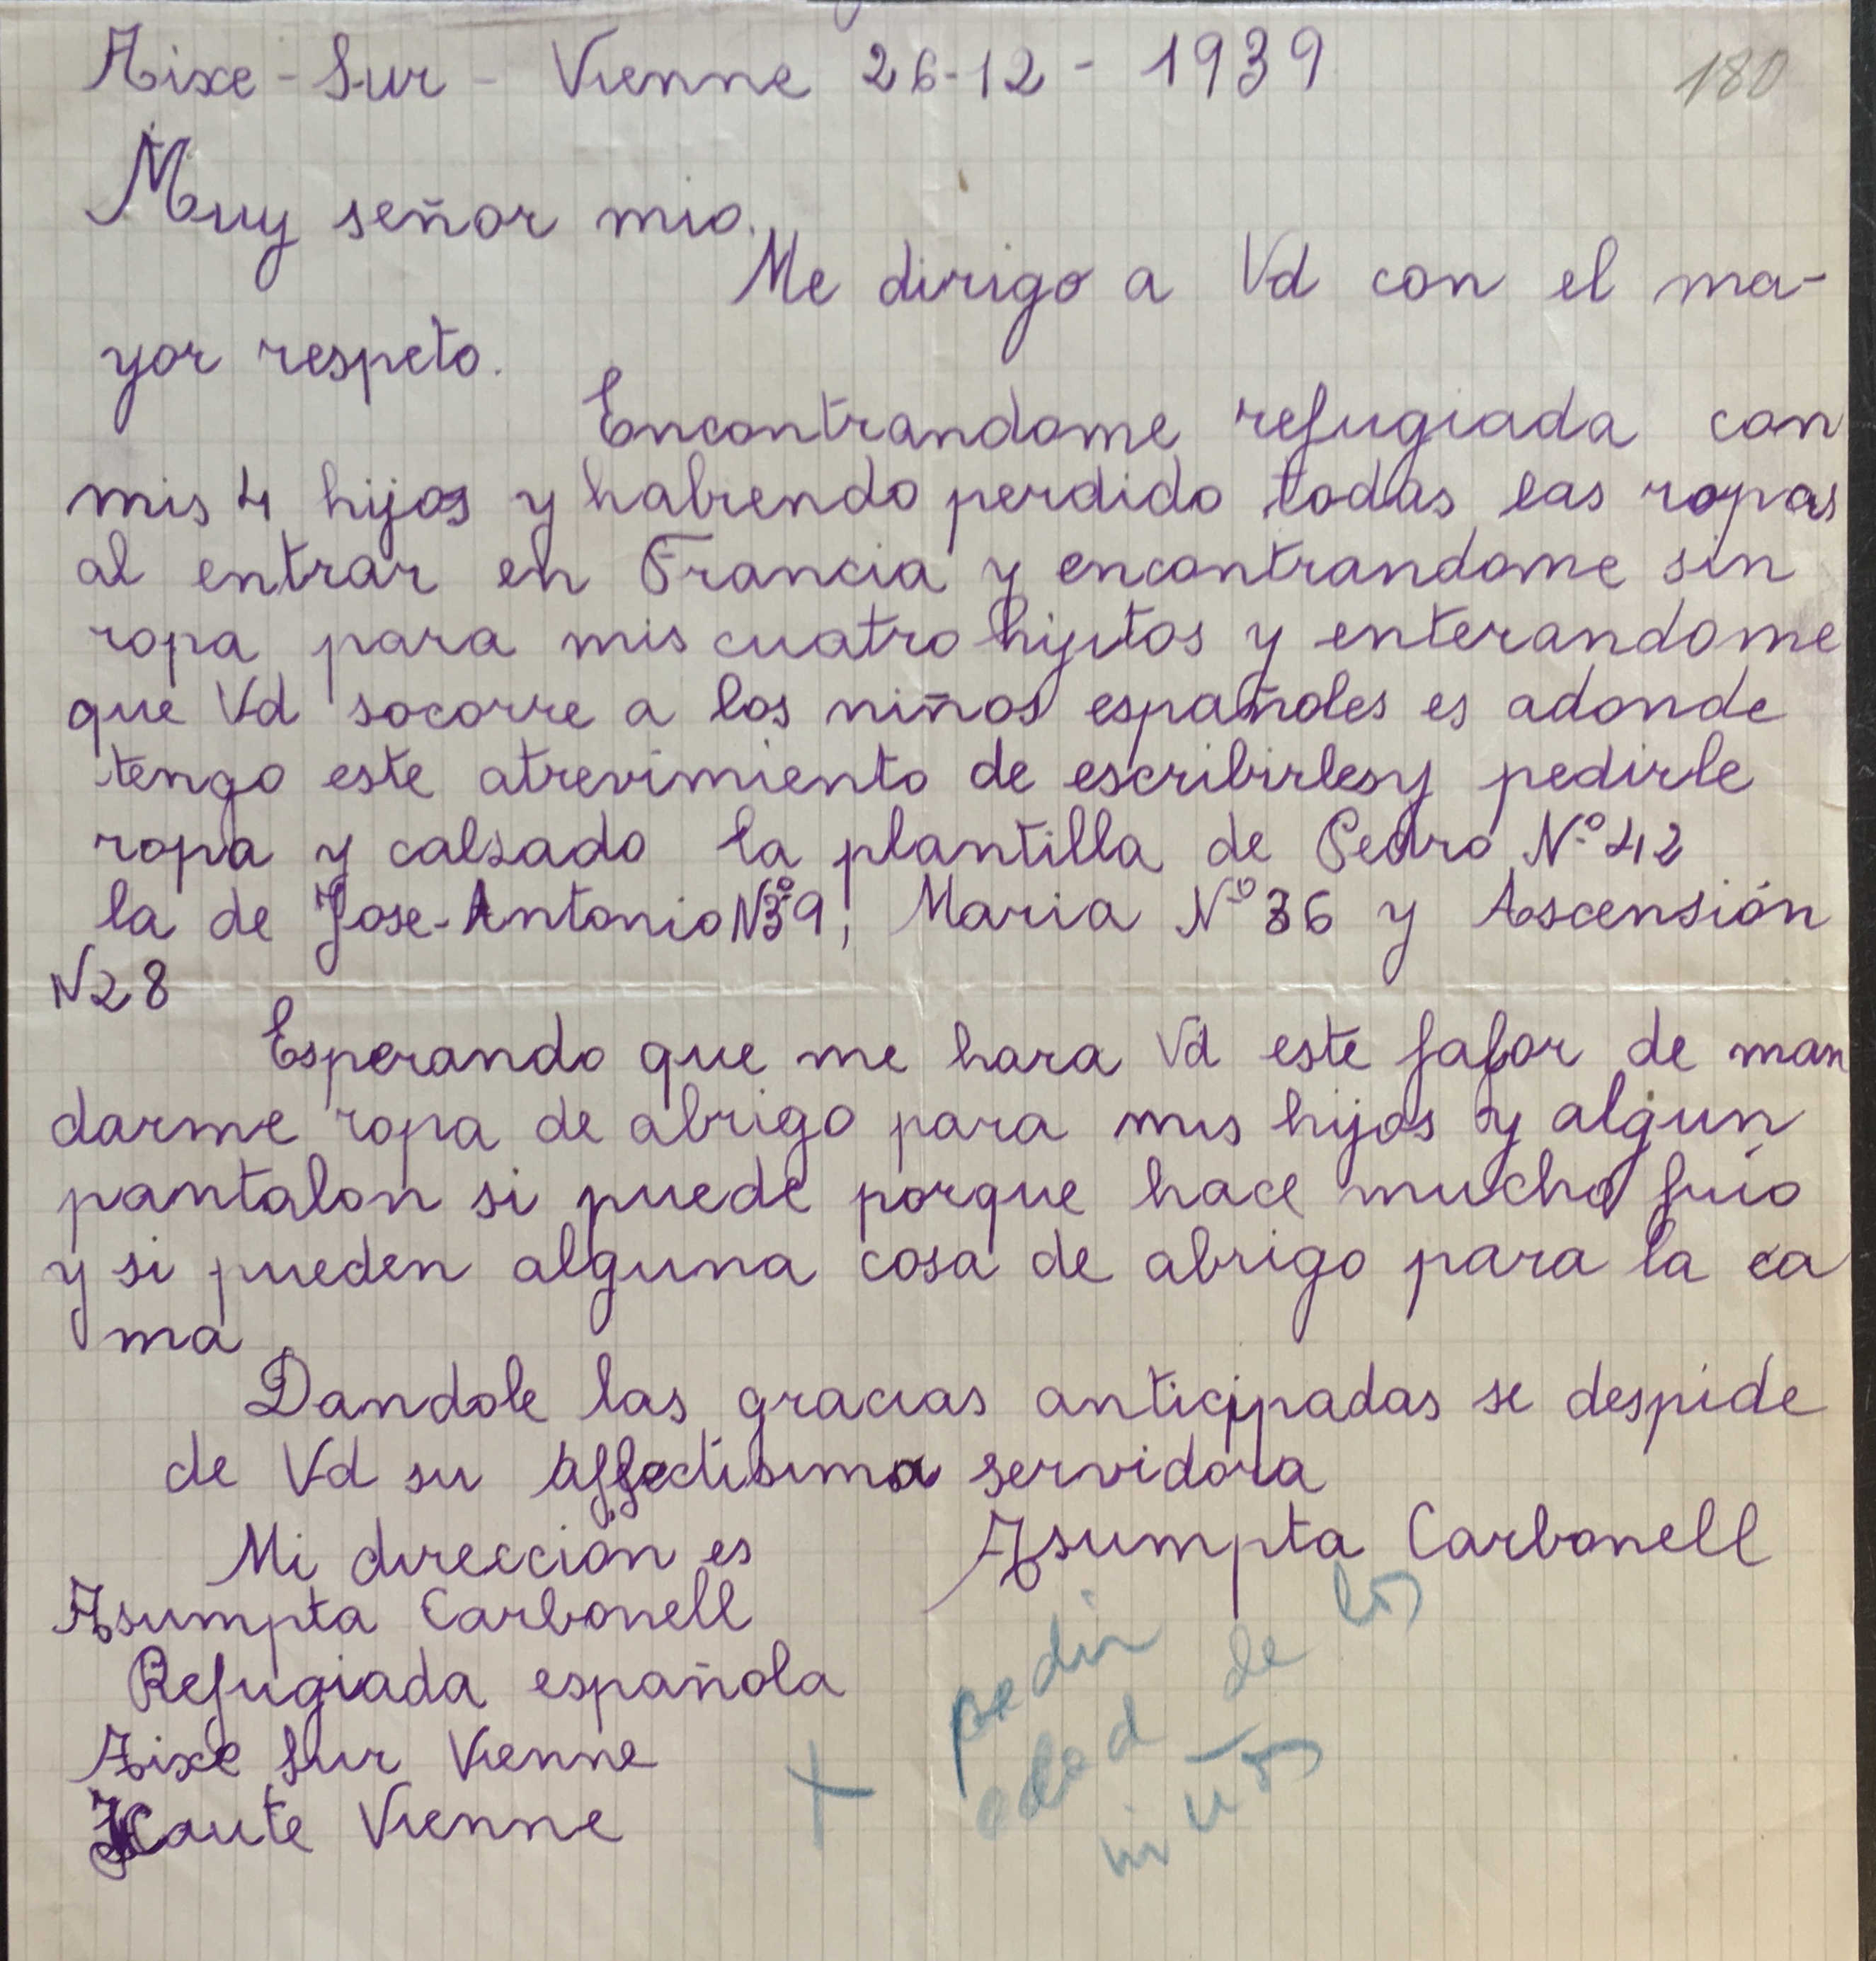 Aixe-Sur-Vienne 26-12-1939
180
Muy señor mio.
Me dirigo a Vd con el ma-
yor respeto.
Encontrandome refugiada con
mis 4 hijos y habiendo perdido todas las ropas
al entrar en Francia y encontrandome sin
ropa para mis cuatro hijitos y enterandome
que Vd socorre a los niños españoles es adonde
tengo este atrevimiento de escribirles y pedirle
ropa y calsado la plantilla de Pedro Nº 42
la de Jose-Antonio Nº 39, Maria Nº 36 y Ascensión
N 28
Esperando que me hara Vd este fafor de man
darme ropa de abrigo para mis hijos y algun
pantalon si puede porque hace mucho frio
y si pueden alguna cosa de abrigo para la ca
ma
Dandole las gracias anticipadas se despide
de Vd su affectisima servidora
Mi dirección es
Asumpta Carbonell
Asumpta Carbonell
Refugiada española
Aixe Sur Vienne
Haute Vienne
pedir
edad de los
niños